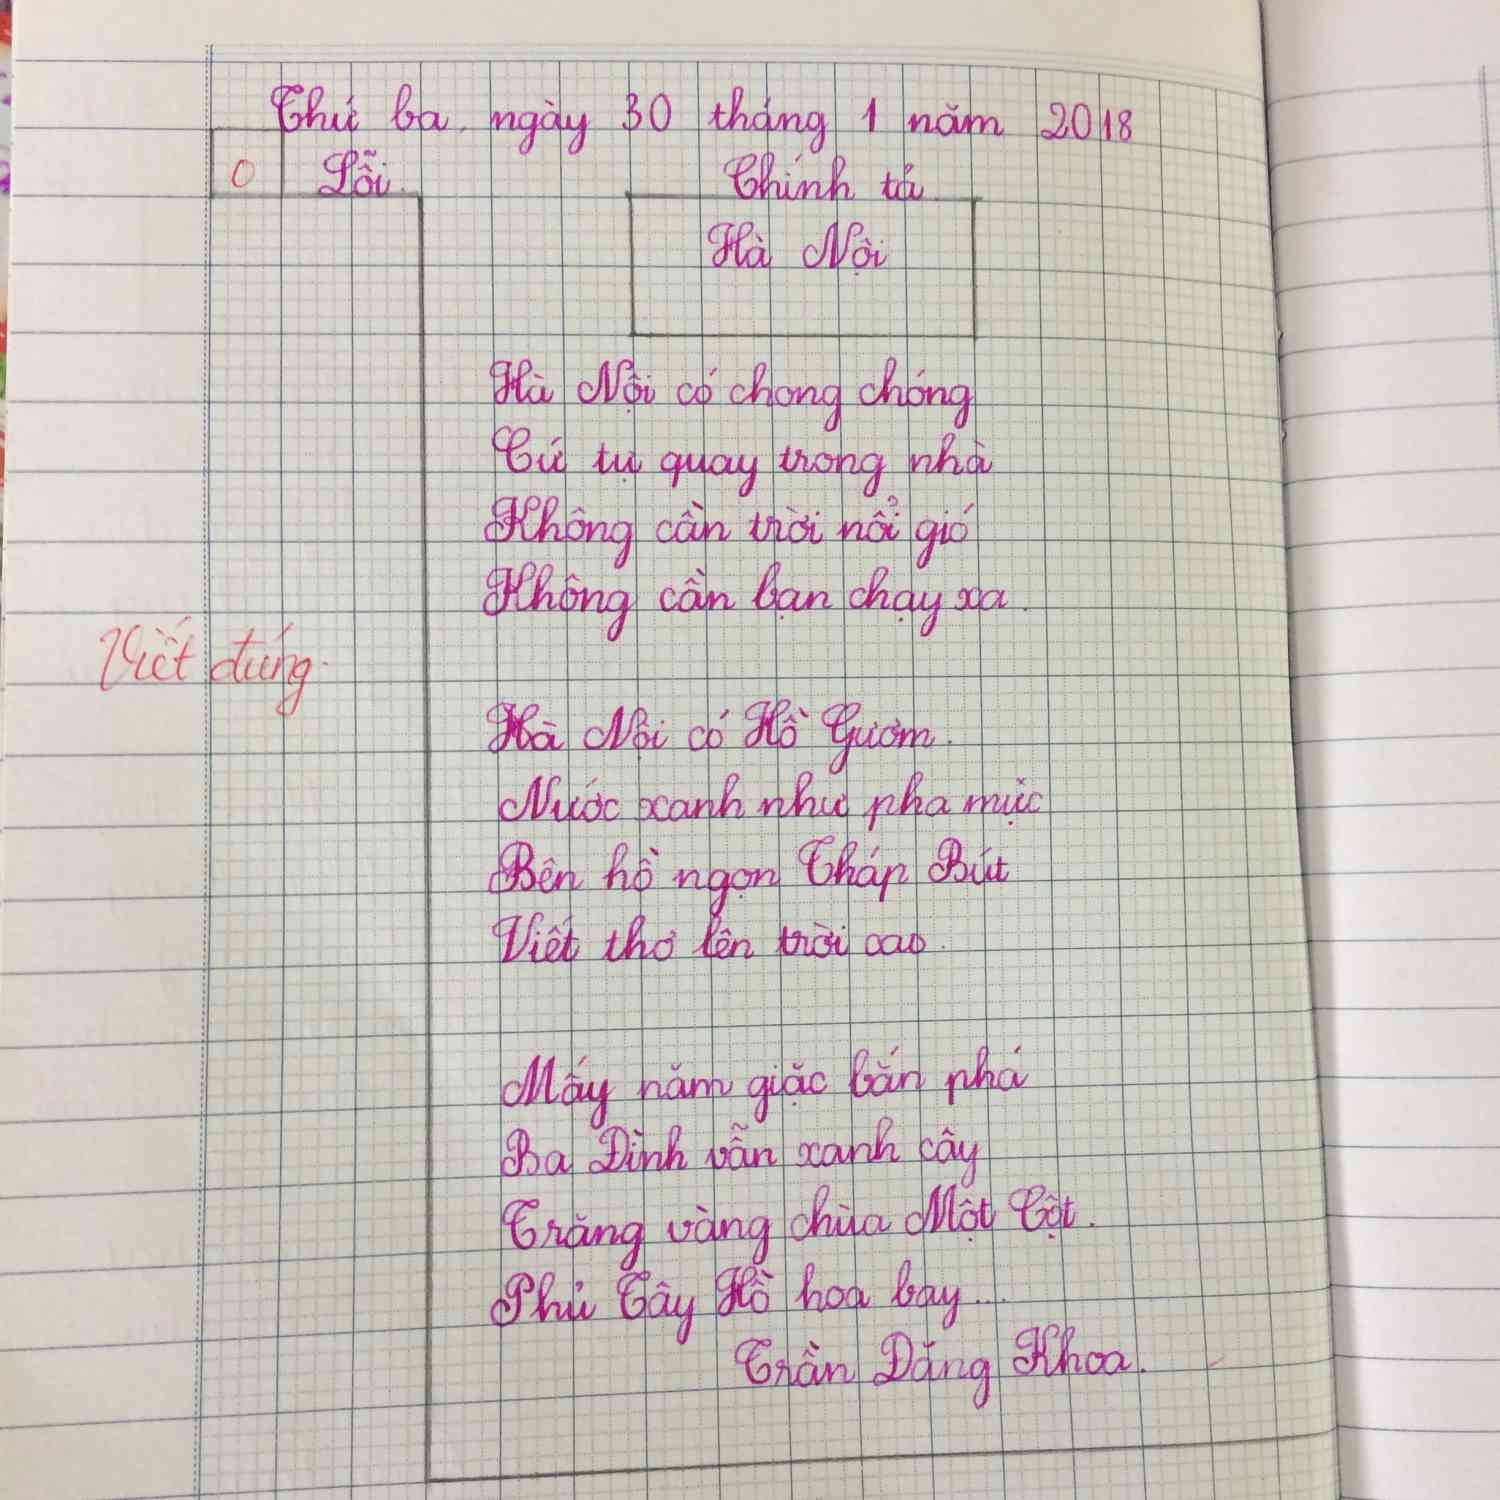 Thứ ba, ngày 30 tháng 1 năm 2018
0 Lỗi Chính tả
Hà Nội
Hà Nội có chong chóng
Cứ tự quay trong nhà
Không cần trời nổi gió
Không cần bạn chạy xa.
Viết đúng.
Hà Nội có Hồ Gươm.
Nước xanh như pha mực
Bên hồ ngọn Tháp Bút
Viết thơ lên trời cao.
Mấy năm giặc bắn phá
Ba Đình vẫn xanh cây
Trăng vàng chùa Một Cột.
Phủ Tây Hồ hoa bay...
Trần Đăng Khoa.